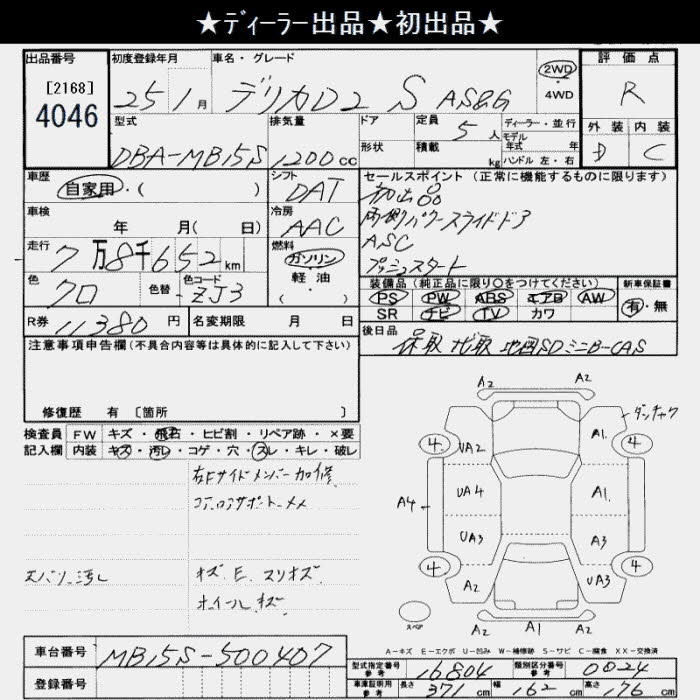 ★ディーラー出品★初出品★
出品番号 初度登録年月 車名・グレード 評価点
[2168]
4046
25 1月 デリカD2 S AS&G 2WD ・4WD R
型式 排気量 ドア 定員 ディーラー・並行 外装 内装
形状 積載 5人 モデル年式 年
DBA-MB15S 1200cc kg ハンドル 左・右 D C
車歴 シフト セールスポイント(正常に機能するものに限ります)
自家用・( ) DAT 初出品
車検 冷房 両側パワースライドドア
年 月( 日) AAC ASC
走行 燃料 プッシュスタート
7万8千652km ガソリン
軽・油
( )
色 色替 色コード 装備品(純正品に限り○をつけてください) 新車保証書
クロ ZJ3 PS PW ABS エアB AW 有・無
SR ナビ TV カワ
R券 11380円 名変期限 月 日 後日品
保取 ナビ取 地図SD ミニB-CAS
注意事項申告欄(不具合内容等は具体的に記入して下さい)
修復歴 有 〔箇所 〕
検査員 FW キズ・飛石・ヒビ割・リペア跡・×要
記入欄 内装 キズ・汚レ・コゲ・穴・スレ・キレ・破レ
右Fサイドメンバー加修
コアロアサポートーメメ
A2 A2
ダンチャク
4 UA2 A1 4
A4 UA4 A1
UA3 A3
4 A2 UA3 4
スペア
A2 A1 A2
ホイールキズ
A-キズ E-エクボ U-凹み W-補修跡 S-サビ C-腐食 XX-交換済
車台番号 MB15S-500407
型式指定番号 参考 16804 類別区分番号 参考 0024
登録番号
車庫証明用 参考 長さ 371cm 幅 162cm 高さ 176cm